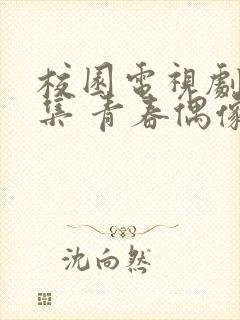 校園電視劇
集 青春偶像
沈向然